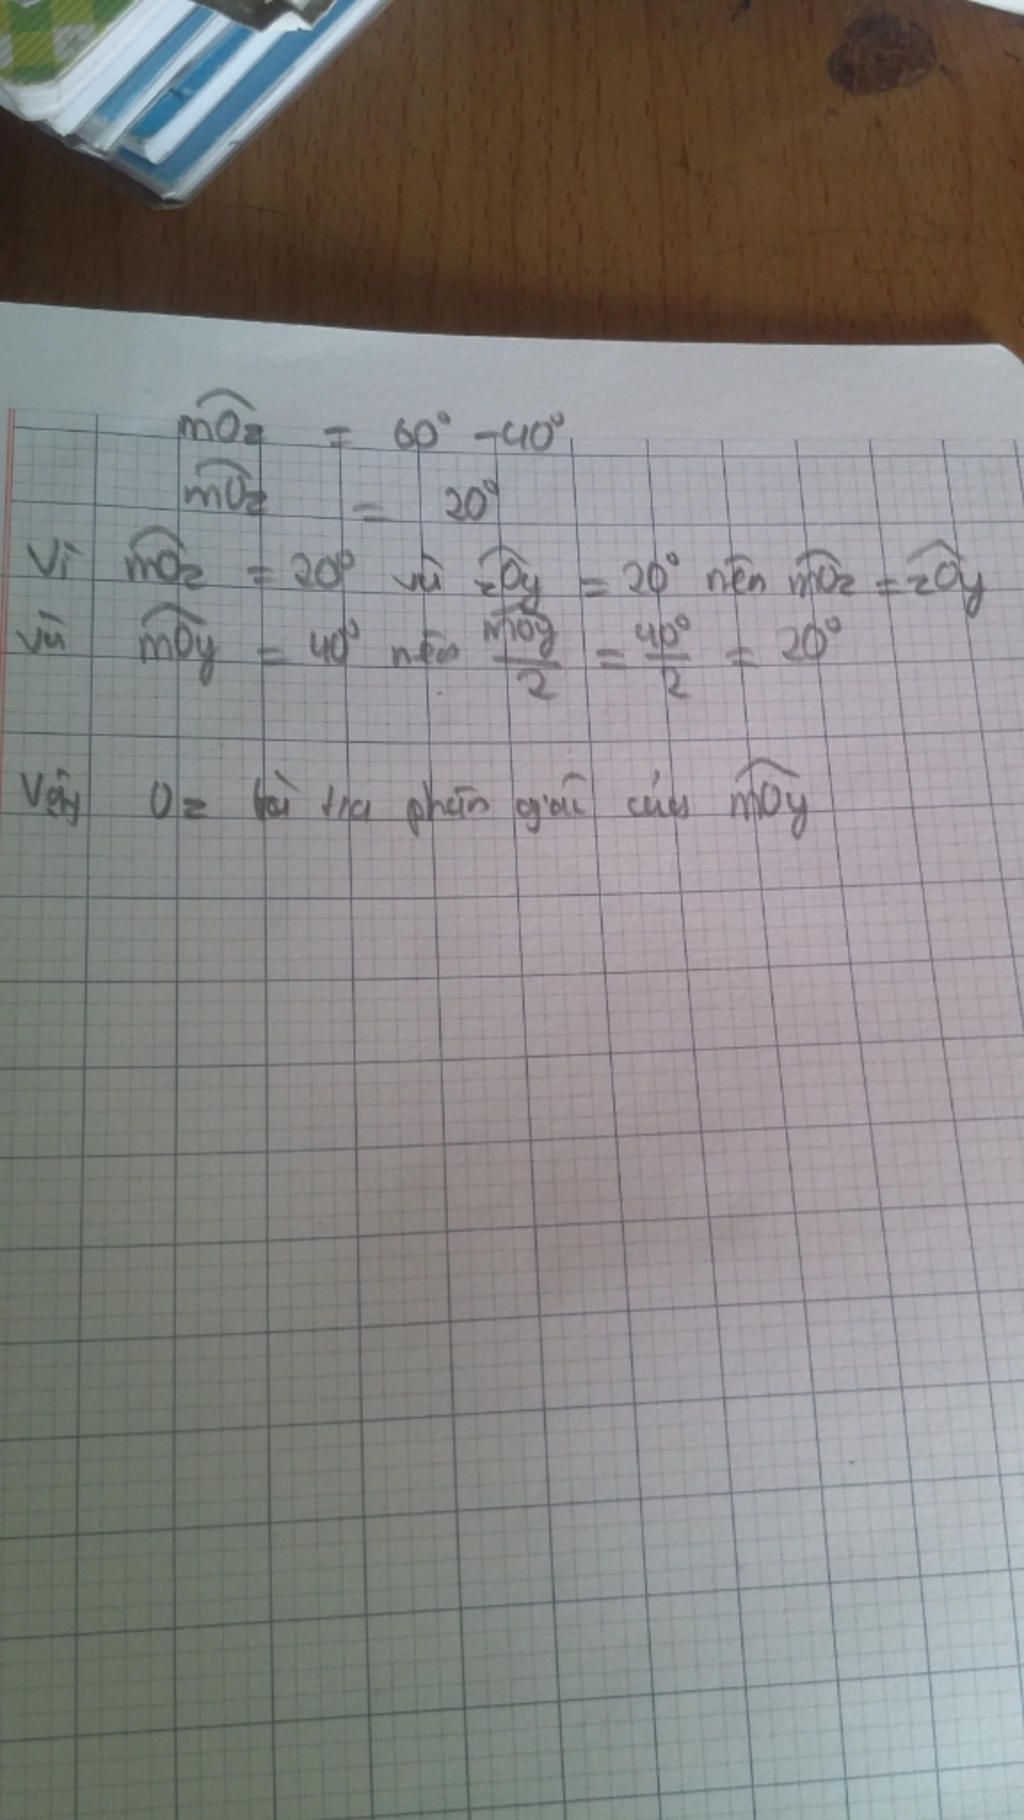 mOz = 60° - 40°
mOz = 20°
Vì mOz = 20° và zOy = 20° nên mOz = zOy
và mOy = 40° nên mOy/2 = 40°/2 = 20°
Vậy Oz là tia phân giác của mOy